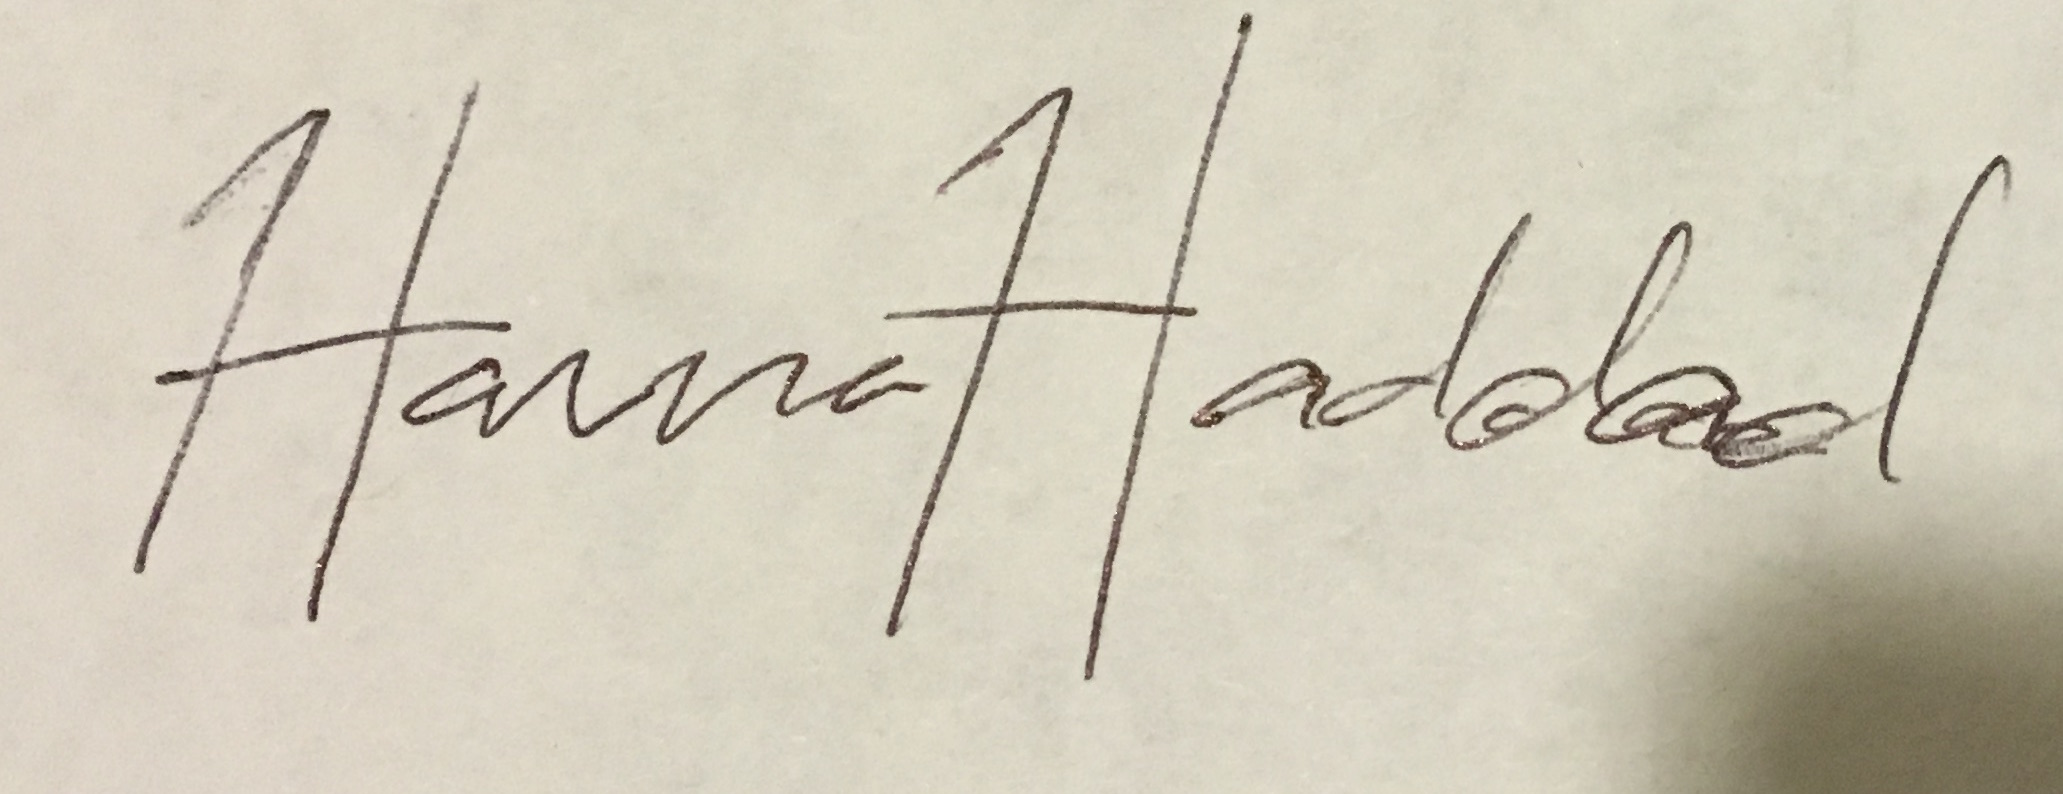 Hanna Haddad